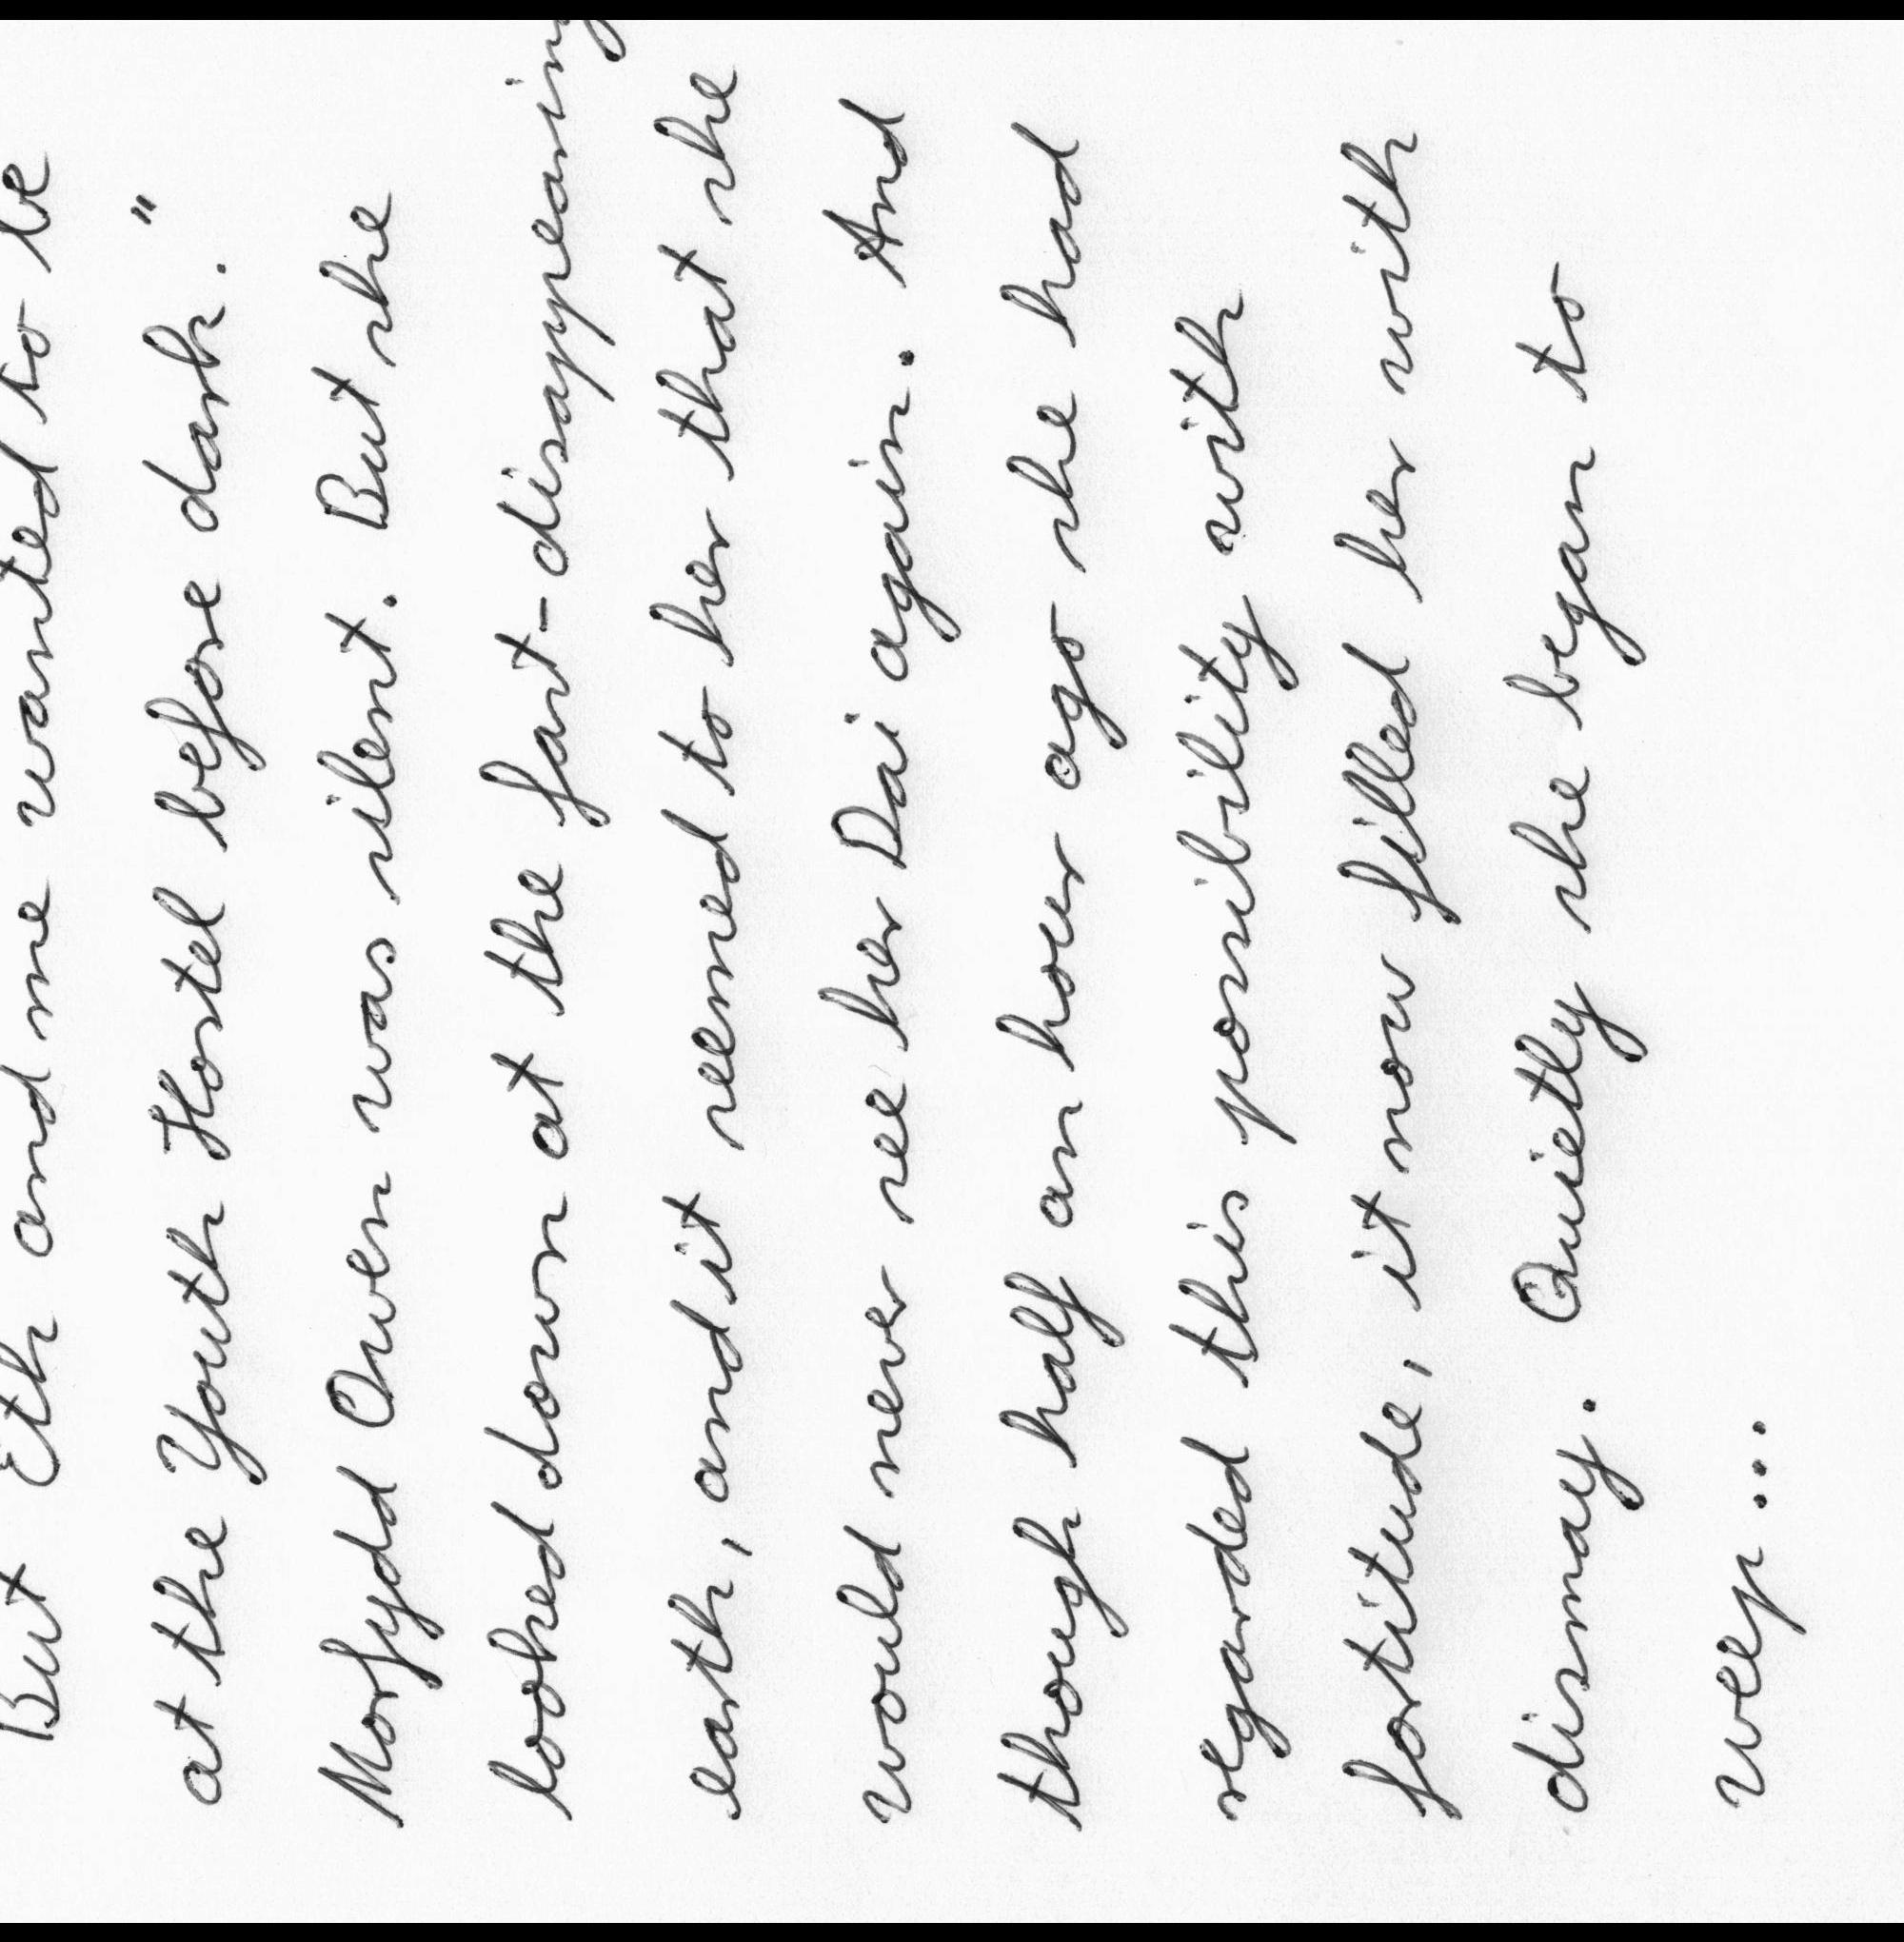 But Eth and me wanted to be
at the Youth Hostel before dark."
Morfydd Owen was silent. But she
looked down at the fast-disappearing
earth, and it seemed to her that she
would never see her Dai again. And
though half an hour ago she had
regarded this possibility with
fortitude, it now filled her with
dismay. Quietly she began to
weep...